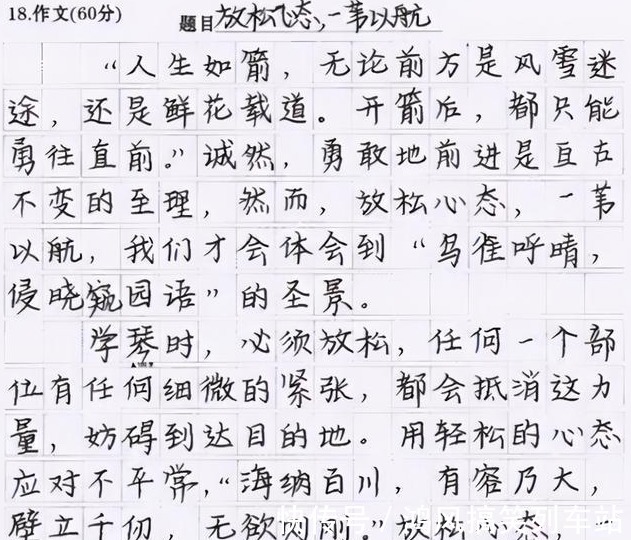 18.作文(60分) 题目 放松心态,一苇以航
“人生如箭，无论前方是风雪迷
途，还是鲜花载道。开箭后，都只能
勇往直前。”诚然，勇敢地前进是亘古
不变的至理，然而，放松心态，一苇
以航，我们才会体会到“鸟雀呼晴，
侵晓窥园语”的圣景。
学琴时，必须放松，任何一个部
位有任何细微的紧张，都会抵消这力
量，妨碍到达目的地。用轻松的心态
应对不平常，“海纳百川，有容乃大，
壁立千仞，无欲则刚。”放松心态，
快传号／鸿风搞笑列车站